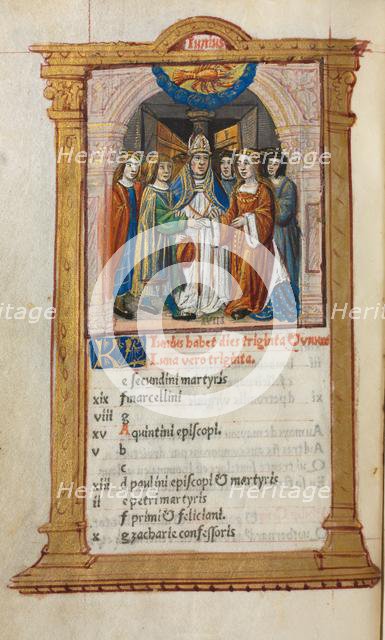 Iunius
IVNI
KL Iunius habet dies triginta & unum
Luna vero triginta.
e secundini martyris
xix f marcellini
viii g
xv A quintini episcopi.
v b
c
xiii d paulini episcopi & martyris
ii e petri martyris
f primi & feliciani.
x g zacharie confessoris
Heritage
Heritage
Heritage
Heritage
Heritage
Heritage
Heritage
Heritage
Heritage